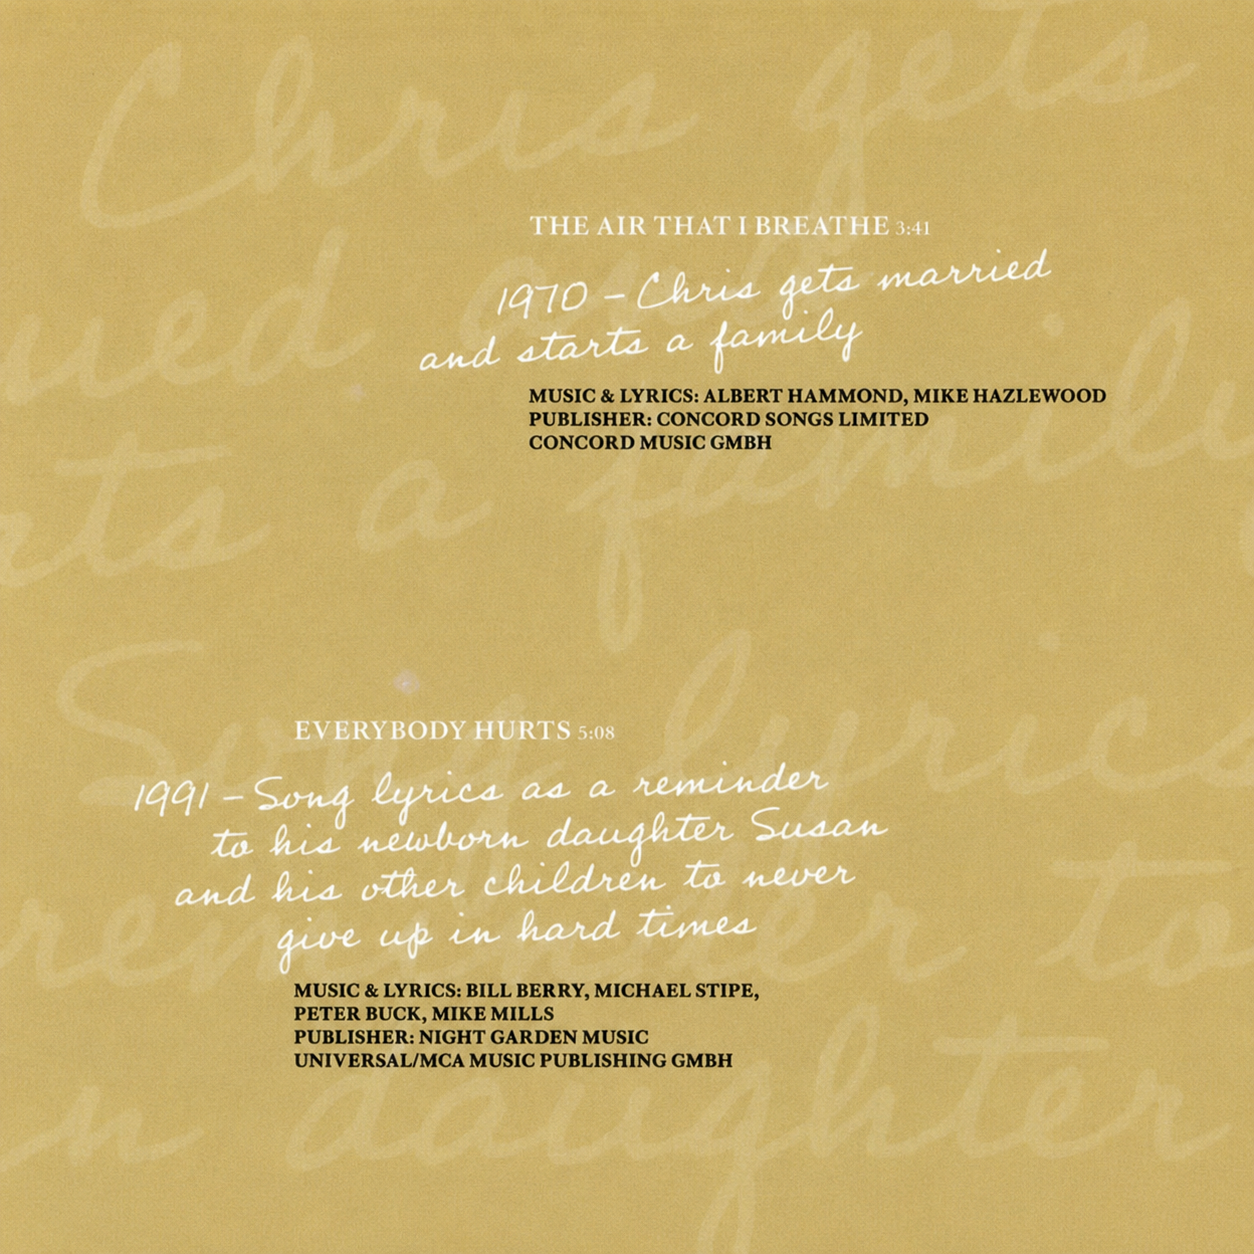 THE AIR THAT I BREATHE 3:41
1970 – Chris gets married
and starts a family
MUSIC & LYRICS: ALBERT HAMMOND, MIKE HAZLEWOOD
PUBLISHER: CONCORD SONGS LIMITED
CONCORD MUSIC GMBH
EVERYBODY HURTS 5:08
1991 – Song lyrics as a reminder
to his newborn daughter Susan
and his other children to never
give up in hard times
MUSIC & LYRICS: BILL BERRY, MICHAEL STIPE,
PETER BUCK, MIKE MILLS
PUBLISHER: NIGHT GARDEN MUSIC
UNIVERSAL/MCA MUSIC PUBLISHING GMBH